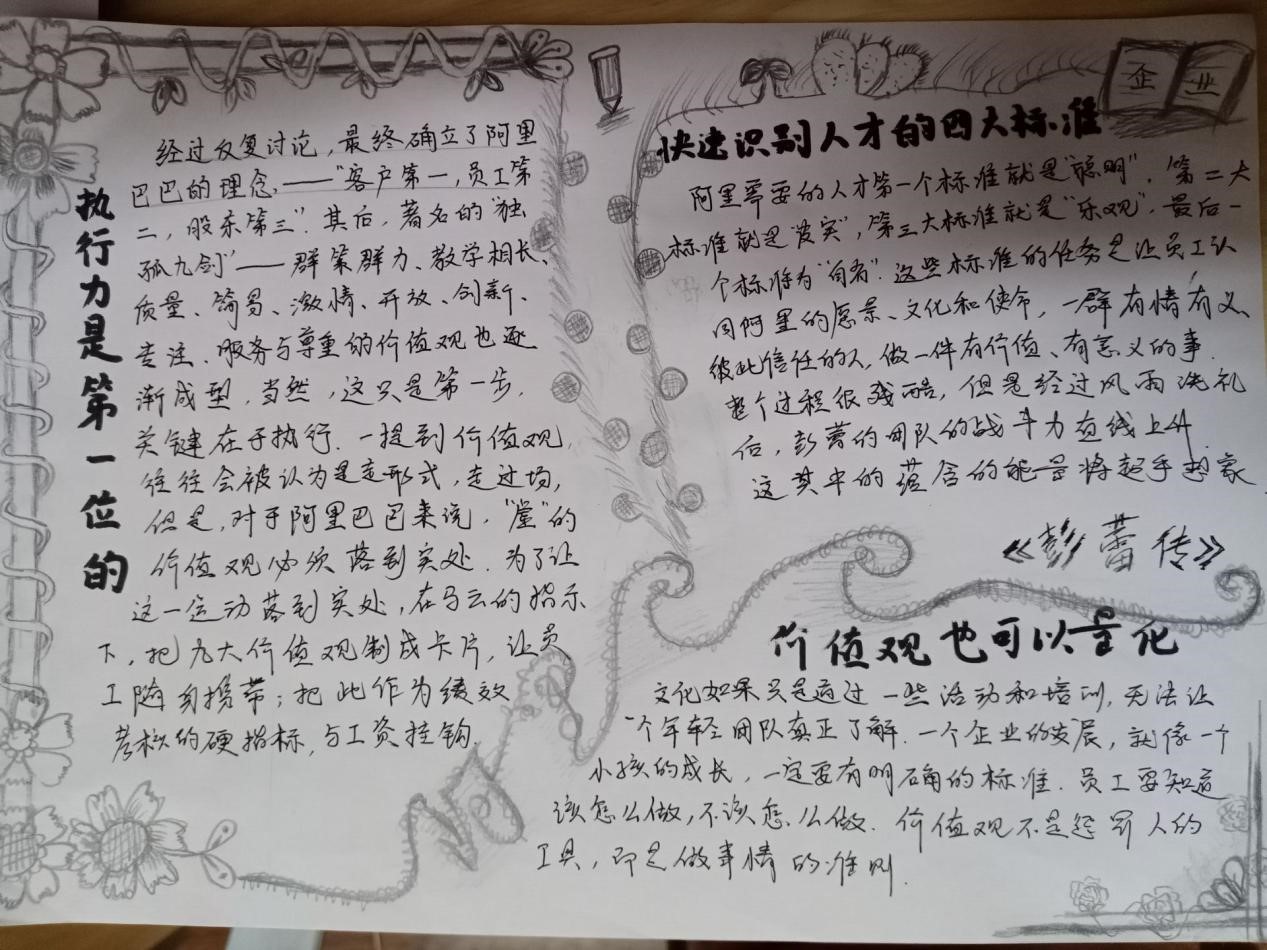 执行力是第一位的
经过反复讨论，最终确立了阿里
巴巴的理念，——“客户第一，员工第
二，股东第三”。其后，著名的“独
孤九剑”——群策群力、教学相长、
质量、简易、激情、开放、创新、
专注、服务与尊重的价值观也逐
渐成型，当然，这只是第一步，
关键在于执行．一提到价值观，
往往会被认为是走形式，走过场，
但是，对于阿里巴巴来说，“虚”的
价值观必须落到实处．为了让
这一运动落到实处，在马云的指示
下，把九大价值观制成卡片，让员
工随身携带；把此作为绩效
考核的硬指标，与工资挂钩．
企业
快速识别人才的四大标准
阿里需要的人才第一个标准就是“聪明”．第二大
标准就是“皮实”，第三大标准就是“乐观”．最后一
个标准为“自省”．这些标准的任务是让员工认
同阿里的愿景、文化和使命，一群有情有义、
彼此信任的人，做一件有价值、有意义的事．
整个过程很残酷，但是经过风雨洗礼
后，彭蕾的团队的战斗力直线上升．
这其中的蕴含的能量将超乎想象
《彭蕾传》
价值观也可以量化
文化如果只是通过一些活动和培训，无法让
一个年轻团队真正了解．一个企业的发展，就像一个
小孩的成长，一定要有明确的标准．员工要知道
该怎么做，不该怎么做．价值观不是惩罚人的
工具，即是做事情的准则．